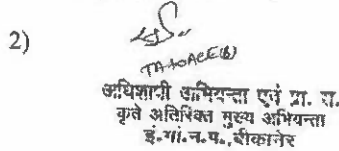 2)
TA to ACE(B)
अधिशाषी अभियन्ता एवं प्रा. स.
कृते अतिरिक्त मुख्य अभियन्ता
इं.गां.न.प., बीकानेर